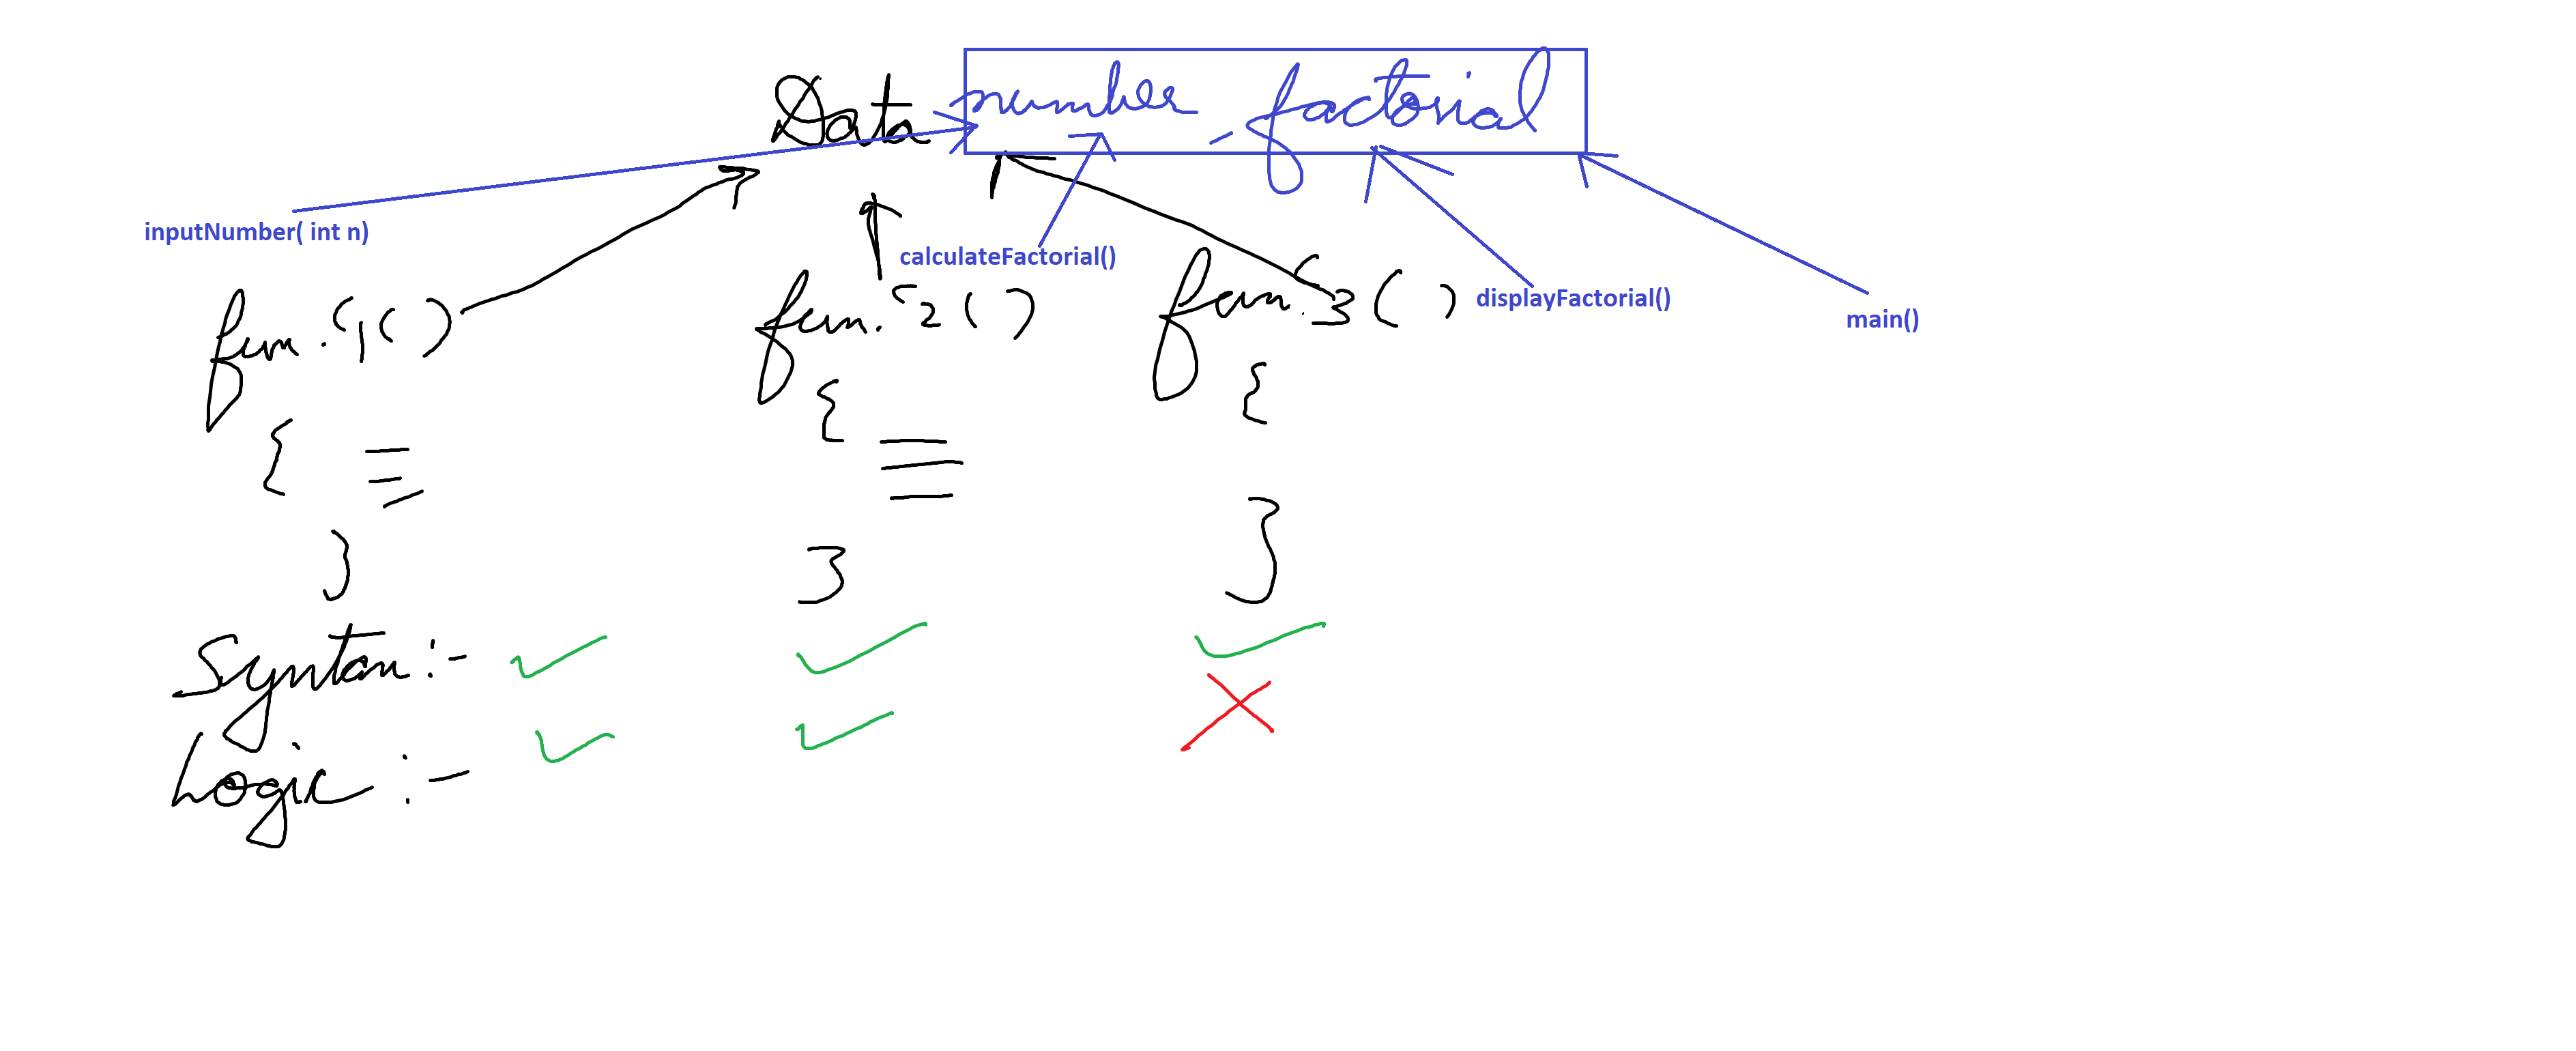 Data number, factorial
inputNumber( int n)
calculateFactorial()
displayFactorial()
main()
func. 1()
func. 2()
func. 3()
{
}
{
}
{
}
Syntax :-
Logic :-